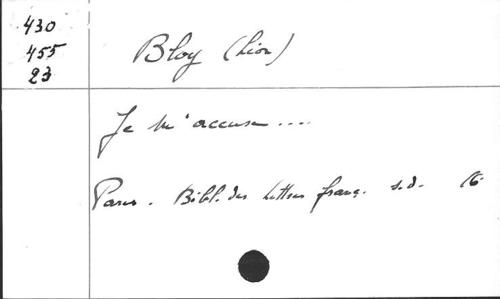 430
455
23
Bloy (Léon)
Je m'accuse....
Paris. Bibl. des Lettres franç. s.d. 16